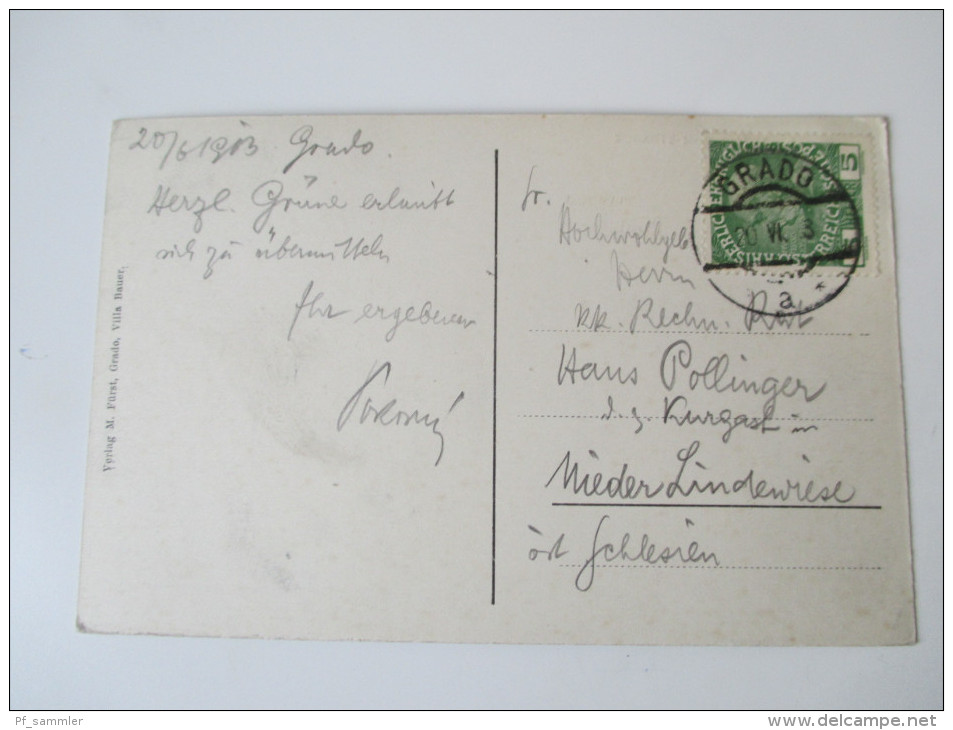 20/6 1913 Grado.
Herzl. Grüße erlaubt
sich zu übermitteln
Ihr ergebener
Pokorný
Verlag M. Fürst, Grado, Villa Bauer.
Sr.
Hochwohlgeb
Herrn
kk. Rechn. Rat
Hans Pollinger
d. z. Kurgast in
Nieder Lindewiese
öst Schlesien
KAISERLICHE KÖNIGLICHE ÖSTERREICHISCHE POST
5 5
GRADO
20 VI 3
a
Pf_sammler
www.delcampe.net